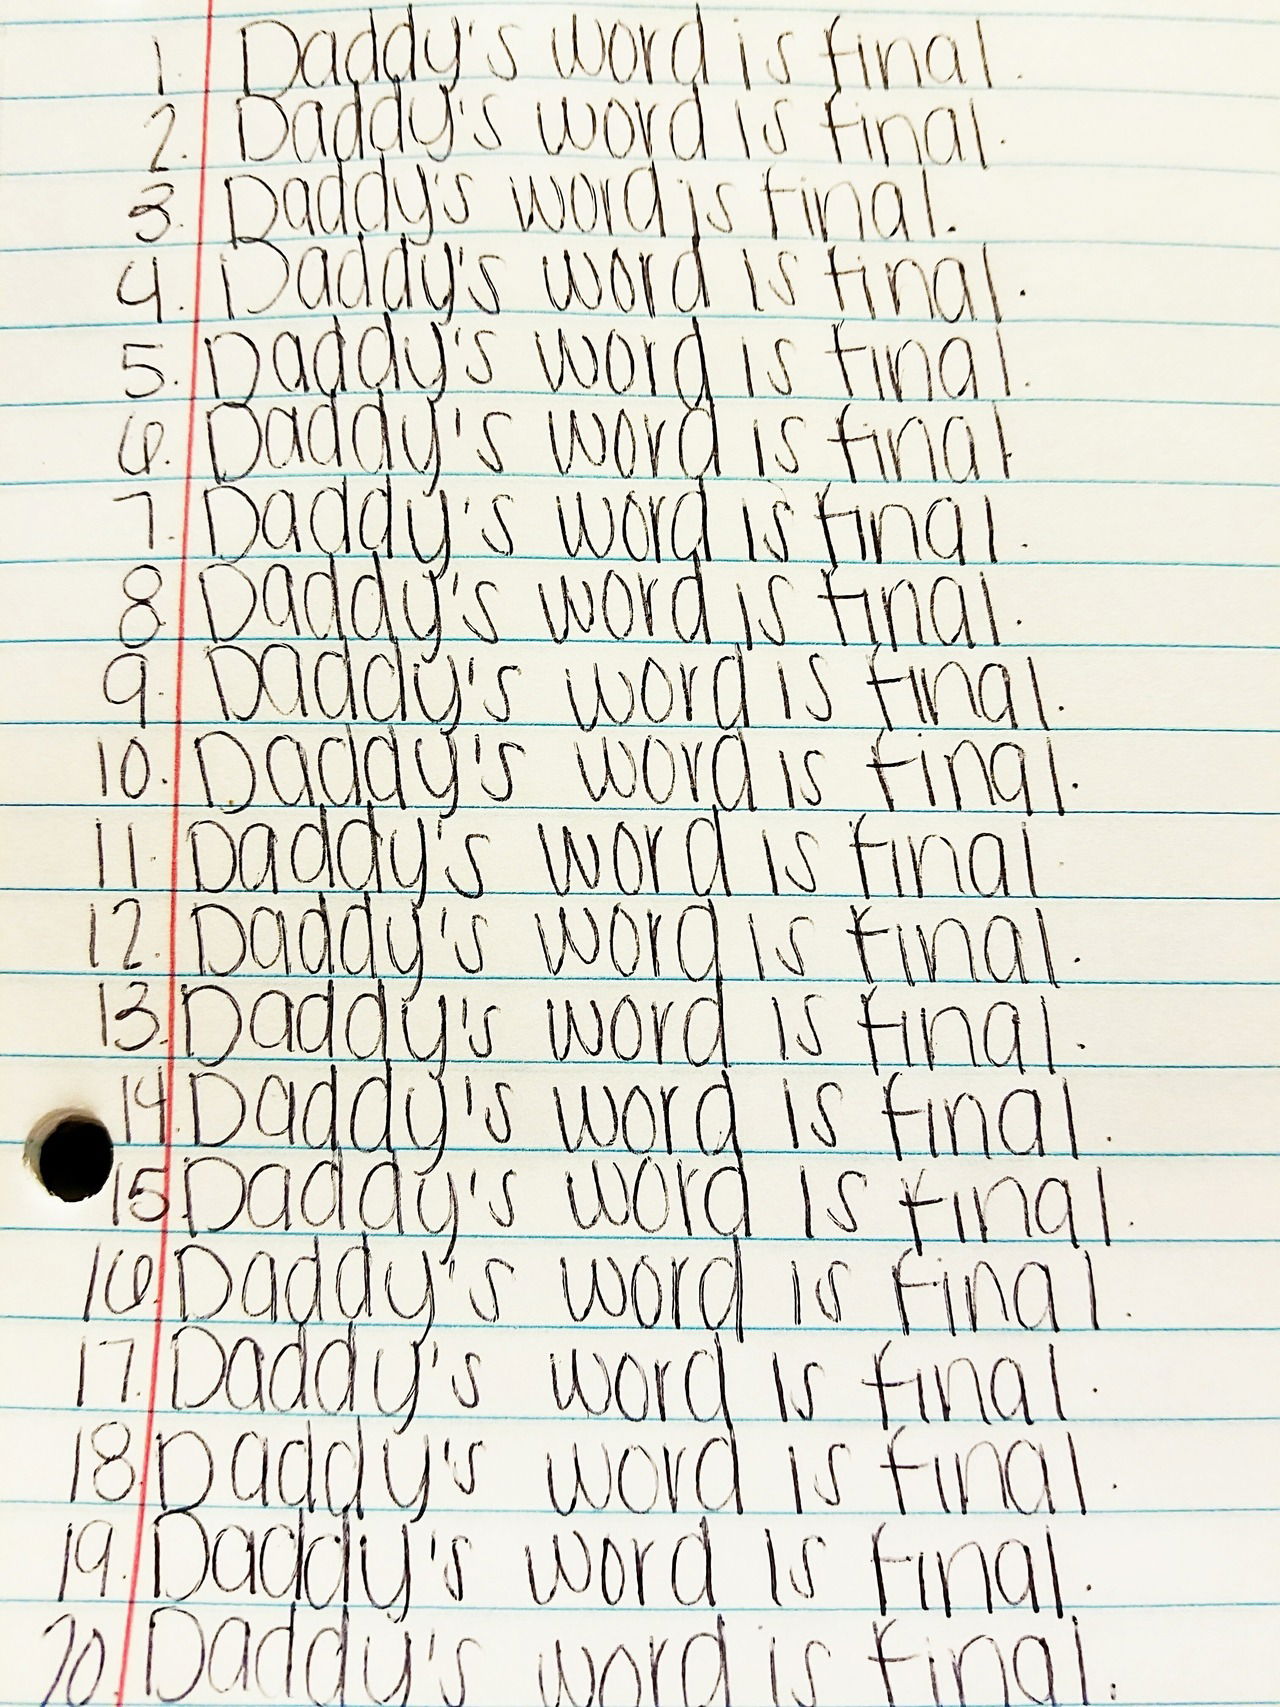 1. Daddy's word is final.
2. Daddy's word is final.
3. Daddy's word is final.
4. Daddy's word is final.
5. Daddy's word is final.
6. Daddy's word is final.
7. Daddy's word is final.
8. Daddy's word is final.
9. Daddy's word is final.
10. Daddy's word is final.
11. Daddy's word is final.
12. Daddy's word is final.
13. Daddy's word is final.
14. Daddy's word is final.
15. Daddy's word is final.
16. Daddy's word is final.
17. Daddy's word is final.
18. Daddy's word is final.
19. Daddy's word is final.
20. Daddy's word is final.